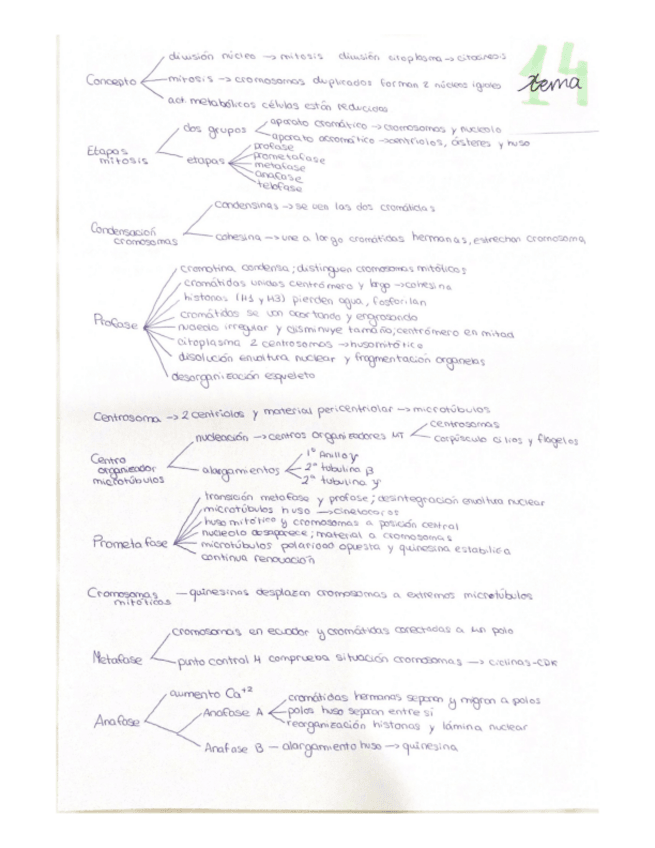 tema 14
Concepto
división núcleo → mitosis división citoplasma → citocinesis
mitosis → cromosomas duplicados forman 2 núcleos iguales
act metabólicas células están reducidas
Etapas mitosis
dos grupos
aparato cromático → cromosomas y nucleolo
aparato acromático → centriolos, ásteres y huso
etapas
profase
prometafase
metafase
anafase
telofase
Condensación cromosomas
condensinas → se ven las dos cromátidas
cohesina → une a largo cromátidas hermanas, estrechan cromosoma,
Profase
cromatina condensa; distinguen cromosomas mitóticos
cromátidas unidas centrómero y largo → cohesina
histonas (H1 y H3) pierden agua, fosforilan
cromátidas se van acortando y engrosando
nucleolo irregular y disminuye tamaño; centrómero en mitad
citoplasma 2 centrosomas → huso mitótico
desolución envoltura nuclear y fragmentación organelas
desorganización esqueleto
Centrosoma → 2 centriolos y material pericentriolar → microtúbulos
Centro organizador microtúbulos
nucleación → centros organizadores MT
centrosomas
corpúsculo cilios y flagelos
alargamientos
1º Anillo γ
2º tubulina β
2º tubulina γ
Prometafase
transición metafase y profase; desintegración envoltura nuclear
microtúbulos huso → cinetocoros
huso mitótico y cromosomas a posición central
nucleolo desaparece; material a cromosomas
microtúbulos polaridad opuesta y quinesina estabiliza
continua renovación
Cromosomas mitóticos — quinesinas desplazan cromosomas a extremos microtúbulos
Metafase
cromosomas en ecuador y cromátidas conectadas a un polo
punto control M comprueba situación cromosomas → ciclinas-CDK
Anafase
aumento Ca+2
Anafase A
cromátidas hermanas separan y migran a polos
polos huso separan entre sí
reorganización histonas y lámina nuclear
Anafase B — alargamiento huso → quinesina